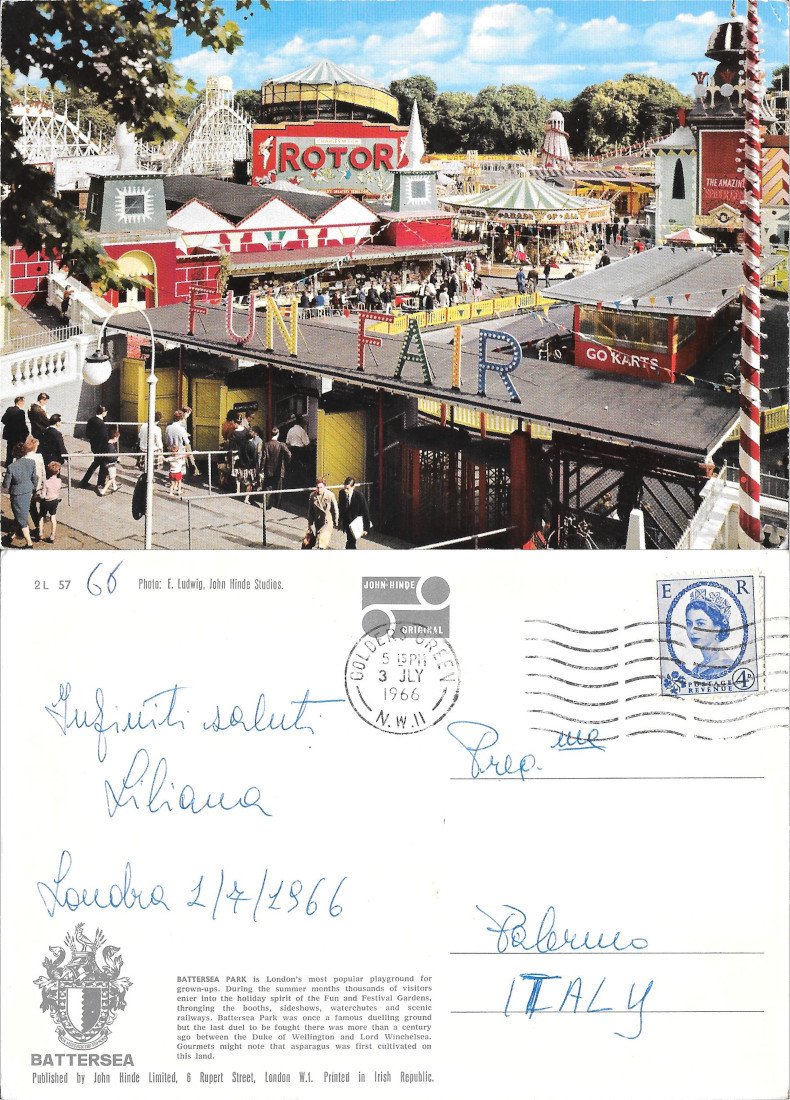 ROTOR
THE AMAZING
FUN FAIR
GO KARTS
2L 57
66
Photo: E. Ludwig, John Hinde Studios.
JOHN·HINDE
ORIGINAL
GOLDERS GREEN
5 15 PM
3 JLY
1966
N.W.11
E R
POSTAGE
REVENUE
4D
Infiniti saluti
Liliana
Londra 1/7/1966
Preg.ma
Palermo
ITALY
BATTERSEA
BATTERSEA PARK is London's most popular playground for
grown-ups. During the summer months thousands of visitors
enter into the holiday spirit of the Fun and Festival Gardens,
thronging the booths, sideshows, waterchutes and scenic
railways. Battersea Park was once a famous duelling ground
but the last duel to be fought there was more than a century
ago between the Duke of Wellington and Lord Winchelsea.
Gourmets might note that asparagus was first cultivated on
this land.
Published by John Hinde Limited, 6 Rupert Street, London W.1. Printed in Irish Republic.